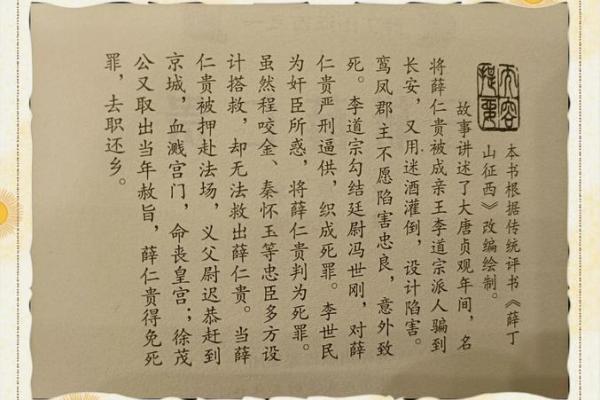 内容提要
本书根据传统评书《薛丁
山征西》改编绘制。
故事讲述了大唐贞观年间，名
将薛仁贵被成亲王李道宗派人骗到
长安，又用迷酒灌倒，设计陷害。
鸾凤郡主不愿陷害忠良，意外致
死。李道宗勾结廷尉冯世刚，对薛
仁贵严刑逼供，织成死罪。李世民
为奸臣所惑，将薛仁贵判为死罪。
虽然程咬金、秦怀玉等忠臣多方设
计搭救，却无法救出薛仁贵。当薛
仁贵被押赴法场，义父尉迟恭赶到
京城，血溅宫门，命丧皇宫；徐茂
公又取出当年赦旨，薛仁贵得免死
罪，去职还乡。